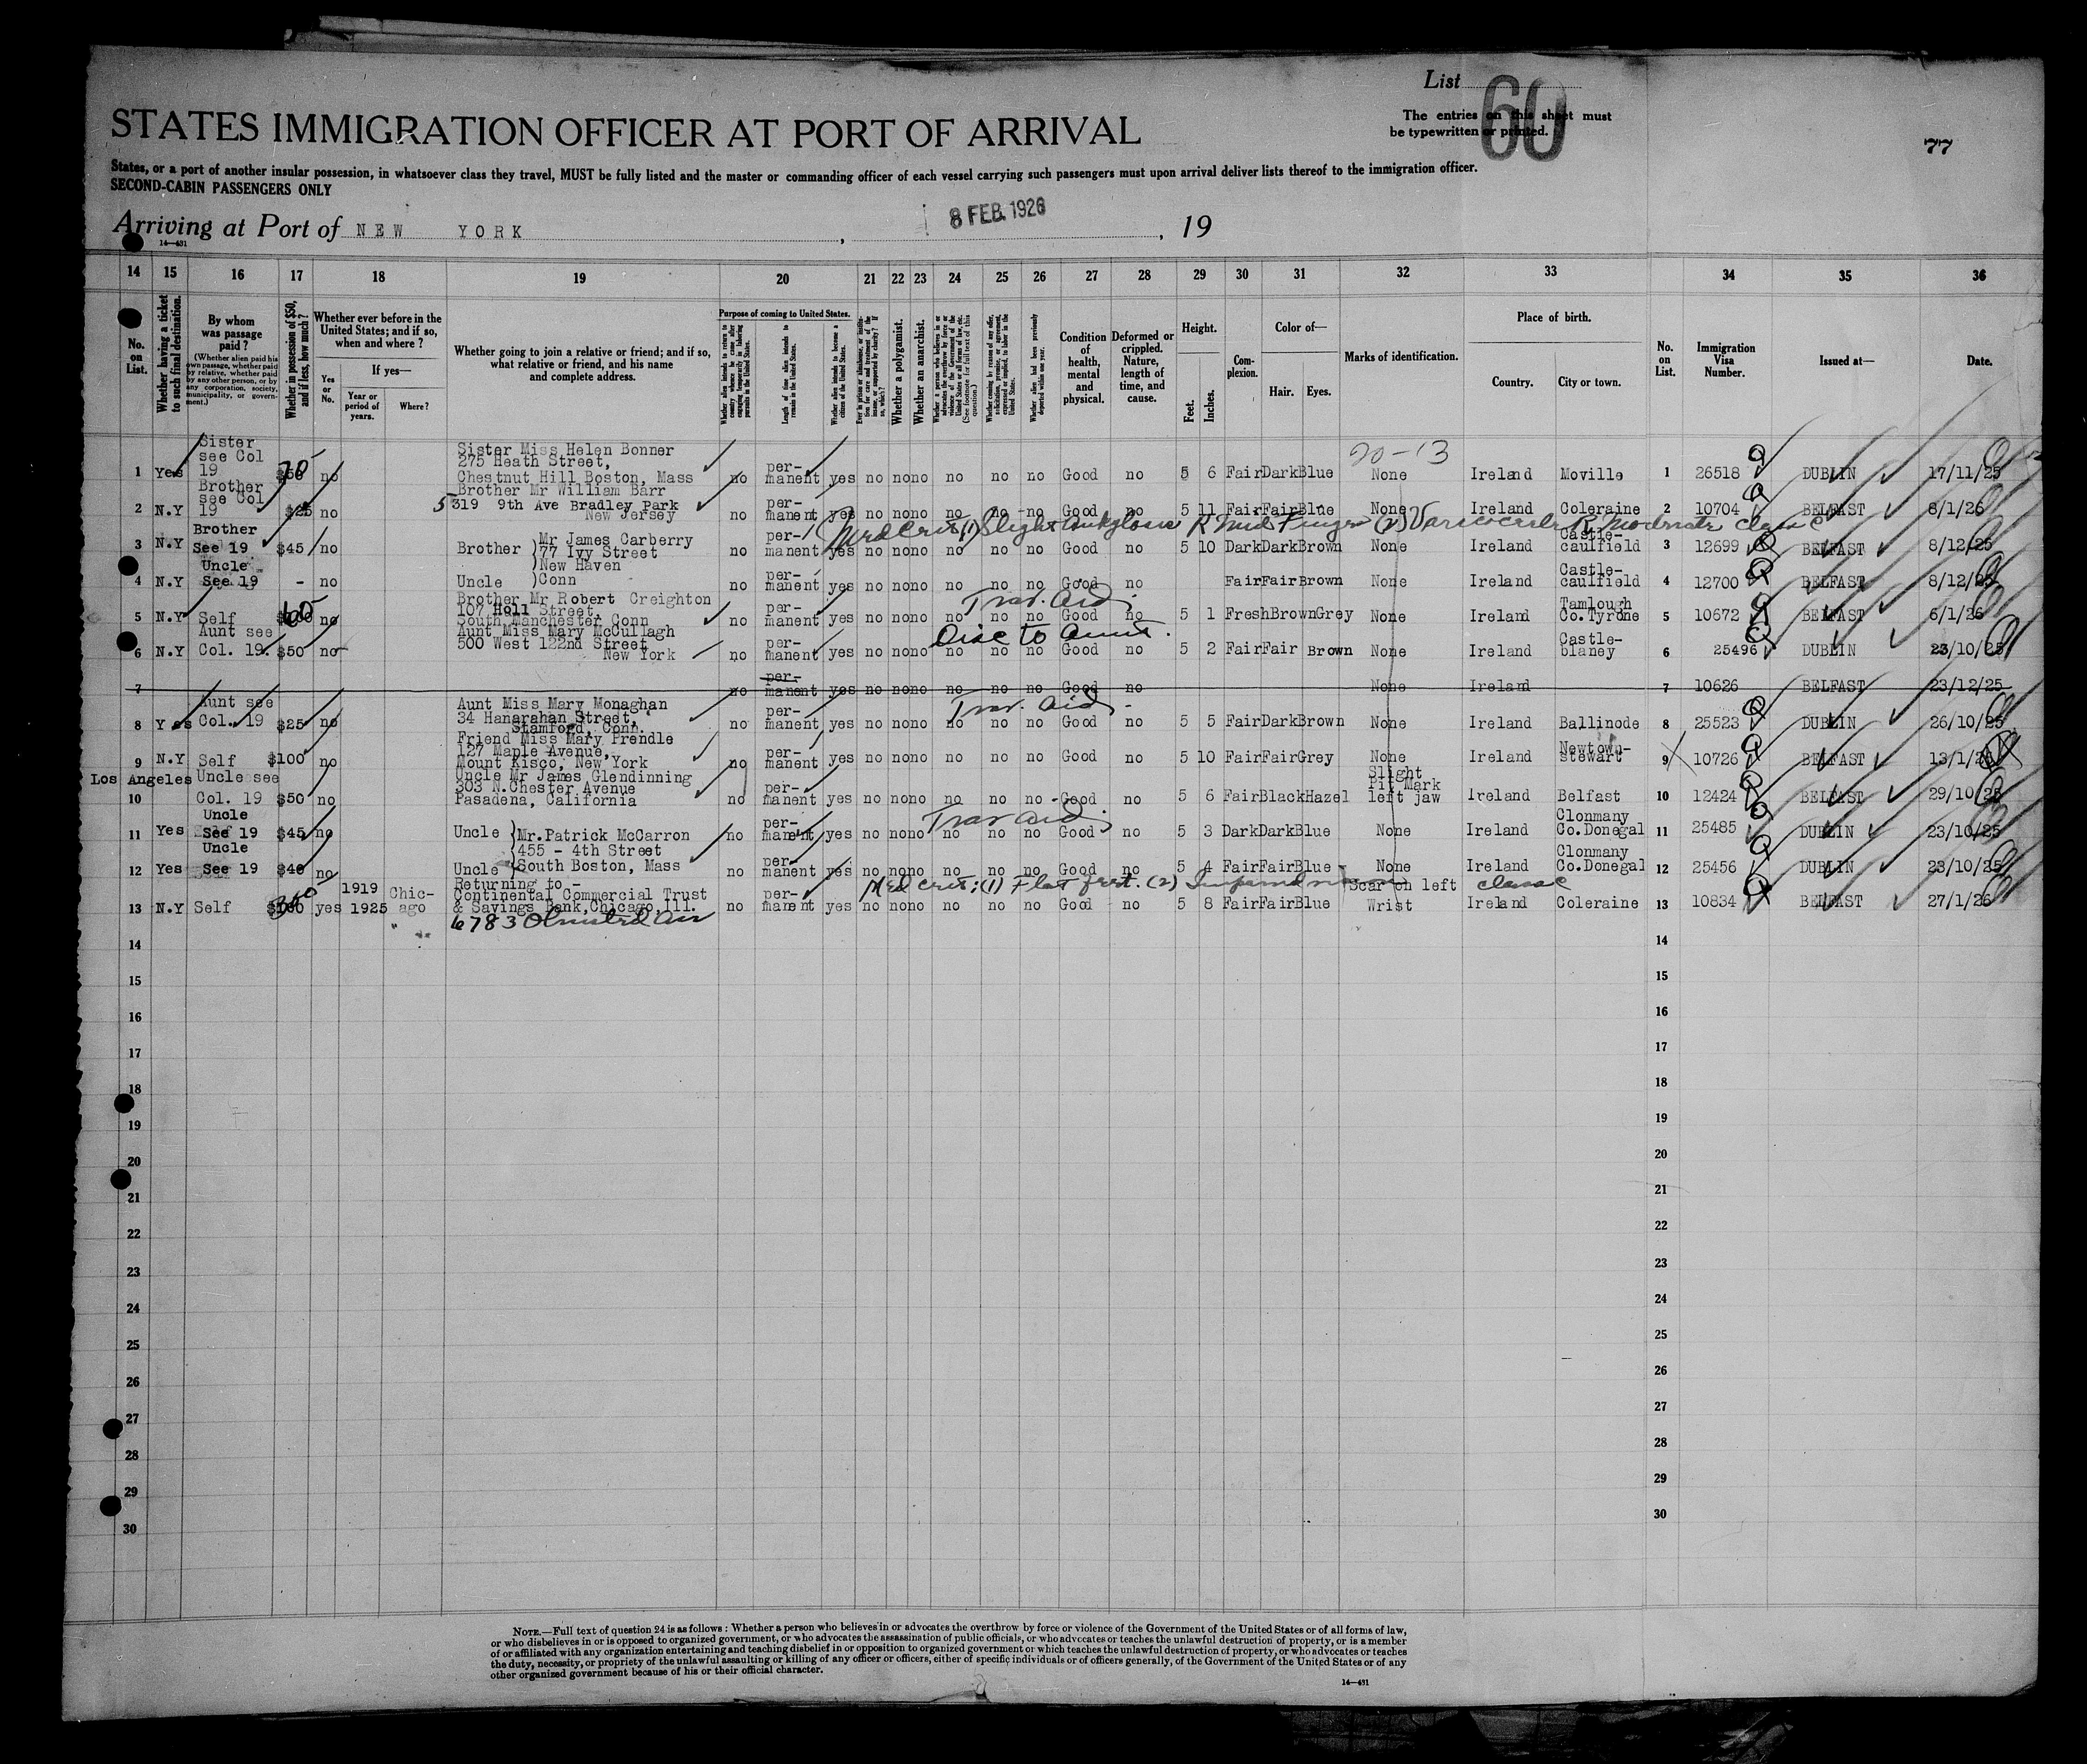 List 60
The entries on this sheet must
be typewritten or printed.
77
STATES IMMIGRATION OFFICER AT PORT OF ARRIVAL
States, or a port of another insular possession, in whatsoever class they travel, MUST be fully listed and the master or commanding officer of each vessel carrying such passengers must upon arrival deliver lists thereof to the immigration officer.
SECOND-CABIN PASSENGERS ONLY
Arriving at Port of NEW YORK, 8 FEB. 1926, 19
14—431
14 15 16 17 18 19 20 21 22 23 24 25 26 27 28 29 30 31 32 33 34 35 36
No. on List.
Whether having a ticket to such final destination.
By whom was passage paid?
(Whether alien paid his own passage, whether paid by relative, whether paid by any other person, or by any corporation, society, municipality, or government.)
Whether in possession of $50, and if less, how much?
Whether ever before in the United States; and if so, when and where?
Yes or No.
If yes—
Year or period of years.
Where?
Whether going to join a relative or friend; and if so, what relative or friend, and his name and complete address.
Purpose of coming to United States.
Whether alien intends to return to country whence he came after engaging temporarily in laboring pursuits in the United States.
Length of time alien intends to remain in the United States.
Whether alien intends to become a citizen of the United States.
Whether a polygamist.
Whether an anarchist.
Whether coming by reason of any offer, solicitation, promise, or agreement, expressed or implied, to labor in the United States.
Whether alien had been previously deported within one year.
Condition of health, mental and physical.
Deformed or crippled. Nature, length of time, and cause.
Height.
Feet. Inches.
Complexion.
Color of—
Hair. Eyes.
Marks of identification.
Place of birth.
Country. City or town.
No. on List.
Immigration Visa Number.
Issued at—
Date.
20-13
1 Yes Sister see Col 19 $50 70 no Sister Miss Helen Bonner 275 Heath Street, Chestnut Hill Boston, Mass no permanent yes no no no no no no Good no 5 6 Fair Dark Blue None Ireland Moville 1 26518 DUBLIN 17/11/25
2 N.Y Brother see Col 19 $25 no Brother Mr William Barr 5319 9th Ave Bradley Park New Jersey no permanent yes no no no no no no Good no 5 11 Fair Fair Blue None Ireland Coleraine 2 10704 BELFAST 8/1/26
Med Cert; (1) Slight Ankylosis R Mid Finger (2) Varicocele R. Moderate class C
3 N.Y Brother See 19 $45 no Brother Mr James Carberry 77 Ivy Street New Haven Conn no permanent yes no no no no no no Good no 5 10 Dark Dark Brown None Ireland Castle-caulfield 3 12699 BELFAST 8/12/25
4 N.Y Uncle See 19 - no Uncle no permanent yes no no no no no no Good no Fair Fair Brown None Ireland Castle-caulfield 4 12700 BELFAST 8/12/25
Trav. Aid.
5 N.Y Self 60 no Brother Mr Robert Creighton 107 Holl Street, South Manchester Conn permanent yes no no no no no no Good no 5 1 Fresh Brown Grey None Ireland Tamlough Co. Tyrone 5 10672 BELFAST 6/1/26
Disc to Aunt.
6 N.Y Aunt see Col. 19 $50 no Aunt Miss Mary McCullagh 500 West 122nd Street New York no permanent yes no no no no no no Good no 5 2 Fair Fair Brown None Ireland Castle-blaney 6 25496 DUBLIN 23/10/25
7 no permanent yes no no no no no no Good no None Ireland 7 10626 BELFAST 23/12/25
Trav. Aid.
8 Yes Aunt see Col. 19 $25 no Aunt Miss Mary Monaghan 34 Hanarahan Street, Stamford, Conn. no permanent yes no no no no no no Good no 5 5 Fair Dark Brown None Ireland Ballinode 8 25523 DUBLIN 26/10/25
9 N.Y Self $100 no Friend Miss Mary Prendle 127 Maple Avenue, Mount Kisco, New York no permanent yes no no no no no no Good no 5 10 Fair Fair Grey None Ireland Newtown-stewart 9 10726 BELFAST 13/1/26
10 Los Angeles Uncle see Col. 19 $50 no Uncle Mr James Glendinning 303 N. Chester Avenue Pasadena, California no permanent yes no no no no no no Good no 5 6 Fair Black Hazel Slight Pit Mark left jaw Ireland Belfast 10 12424 BELFAST 29/10/25
Trav Aid.
11 Yes Uncle See 19 $45 no Uncle Mr. Patrick McCarron 455 - 4th Street South Boston, Mass no permanent yes no no no no no no Good no 5 3 Dark Dark Blue None Ireland Clonmany Co. Donegal 11 25485 DUBLIN 23/10/25
12 Yes Uncle See 19 $40 no Uncle no permanent yes no no no no no no Good no 5 4 Fair Fair Blue None Ireland Clonmany Co. Donegal 12 25456 DUBLIN 23/10/25
Med Cert; (1) Flat feet. (2) class C
13 N.Y Self yes 1919 1925 Chicago Returning to - Continental Commercial Trust & Savings Bank, Chicago, Ill. no permanent yes no no no no no no Good no 5 8 Fair Fair Blue Scar on left Wrist Ireland Coleraine 13 10834 BELFAST 27/1/26
6783 Olmsted Av
14 14
15 15
16 16
17 17
18 18
19 19
20 20
21 21
22 22
23 23
24 24
25 25
26 26
27 27
28 28
29 29
30 30
NOTE.—Full text of question 24 is as follows: Whether a person who believes in or advocates the overthrow by force or violence of the Government of the United States or of all forms of law,
or who disbelieves in or is opposed to organized government, or who advocates the assassination of public officials, or who advocates or teaches the unlawful destruction of property, or is a member
of or affiliated with any organization entertaining and teaching disbelief in or opposition to organized government or which teaches the unlawful destruction of property, or who advocates or teaches
the duty, necessity, or propriety of the unlawful assaulting or killing of any officer or officers, either of specific individuals or of officers generally, of the Government of the United States or of any
other organized government because of his or their official character.
14—431